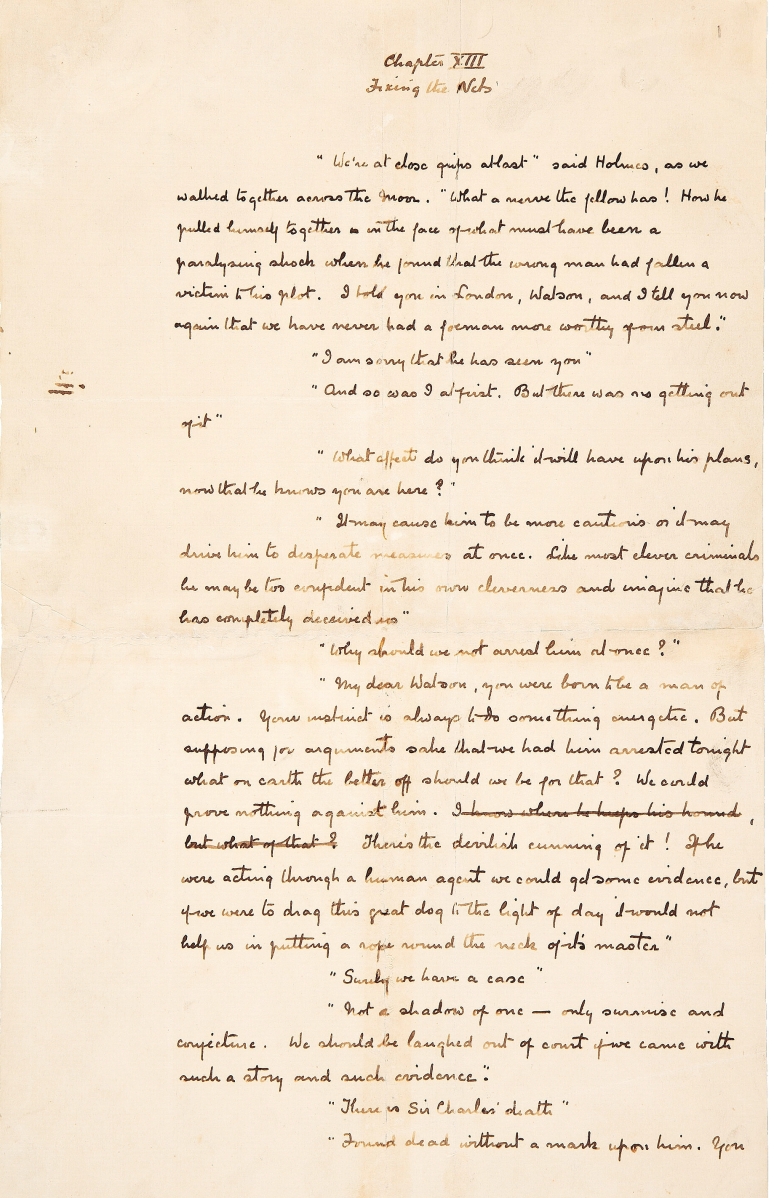 Chapter XIII
Fixing the Nets
"We're at close grips at last" said Holmes, as we
walked together across the Moor. "What a nerve the fellow has! How he
pulled himself together in the face of what must have been a
paralysing shock when he found that the wrong man had fallen a
victim to his plot. I told you in London, Watson, and I tell you now
again that we have never had a foeman more worthy of our steel."
"I am sorry that he has seen you"
"And so was I at first. But there was no getting out
of it"
"What effect do you think it will have upon his plans,
now that he knows you are here?"
"It may cause him to be more cautious or it may
drive him to desperate measures at once. Like most clever criminals
he may be too confident in his own cleverness and imagine that he
has completely deceived us"
"Why should we not arrest him at once?"
"My dear Watson, you were born to be a man of
action. Your instinct is always to do something energetic. But
supposing for arguments sake that we had him arrested tonight
what on earth the better off should we be for that? We could
prove nothing against him. I know where he keeps his hound,
but what of that? There's the devilish cunning of it! If he
were acting through a human agent we could get some evidence, but
if we were to drag this great dog to the light of day it would not
help us in putting a rope round the neck of it's master"
"Surely we have a case"
"Not a shadow of one — only surmise and
conjecture. We should be laughed out of court if we came with
such a story and such evidence."
"There is Sir Charles' death"
"Found dead without a mark upon him. You